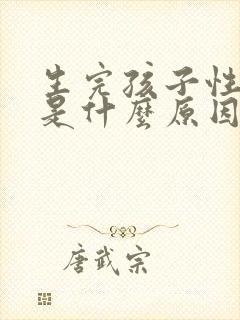 生完孩子性
是什麼原因
唐武宗